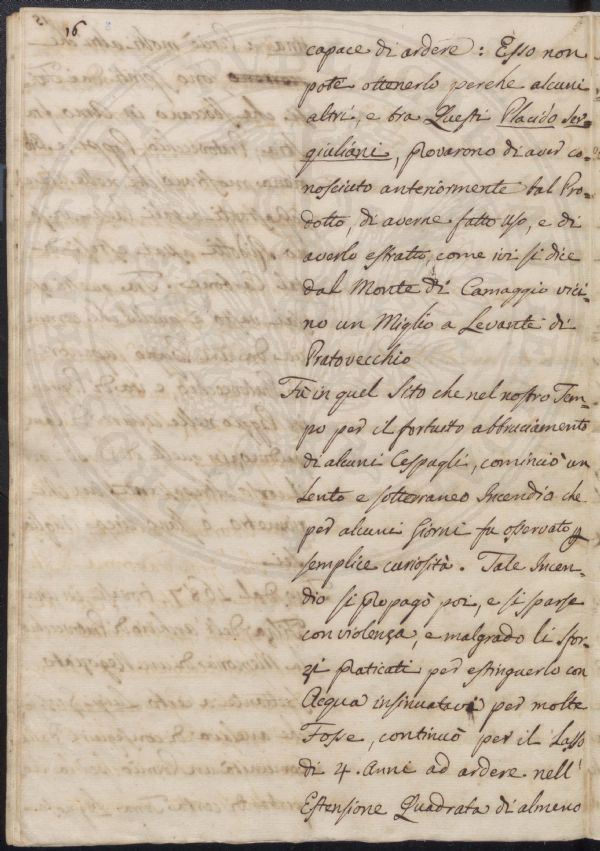 16
capace di ardere: Esso non
potè ottenerlo perchè alcuni
altri, e tra Questi Placido Ser-
giuliani, provarono di aver co-
nosciuto anteriormente tal Pro-
dotto, di averne fatto uso, e di
averlo estratto, come ivi si dice
dal Monte di Camaggio vici-
no un Miglio a Levante di
Pratovecchio
Fù in quel Sito che nel nostro Tem-
po per il fortuito abbruciamento
di alcuni Cespugli, cominciò un
lento e sotterraneo Incendio che
per alcuni Giorni fu osservato
semplice curiosità. Tale Incen-
dio si propagò poi, e si sparse
con violenza, e malgrado li sfor-
zi praticati per estinguerlo con
Acqua insinuatavi per molte
Fosse, continuò per il Lasso
di 4. Anni ad ardere nell'
Estensione Quadrata di almeno